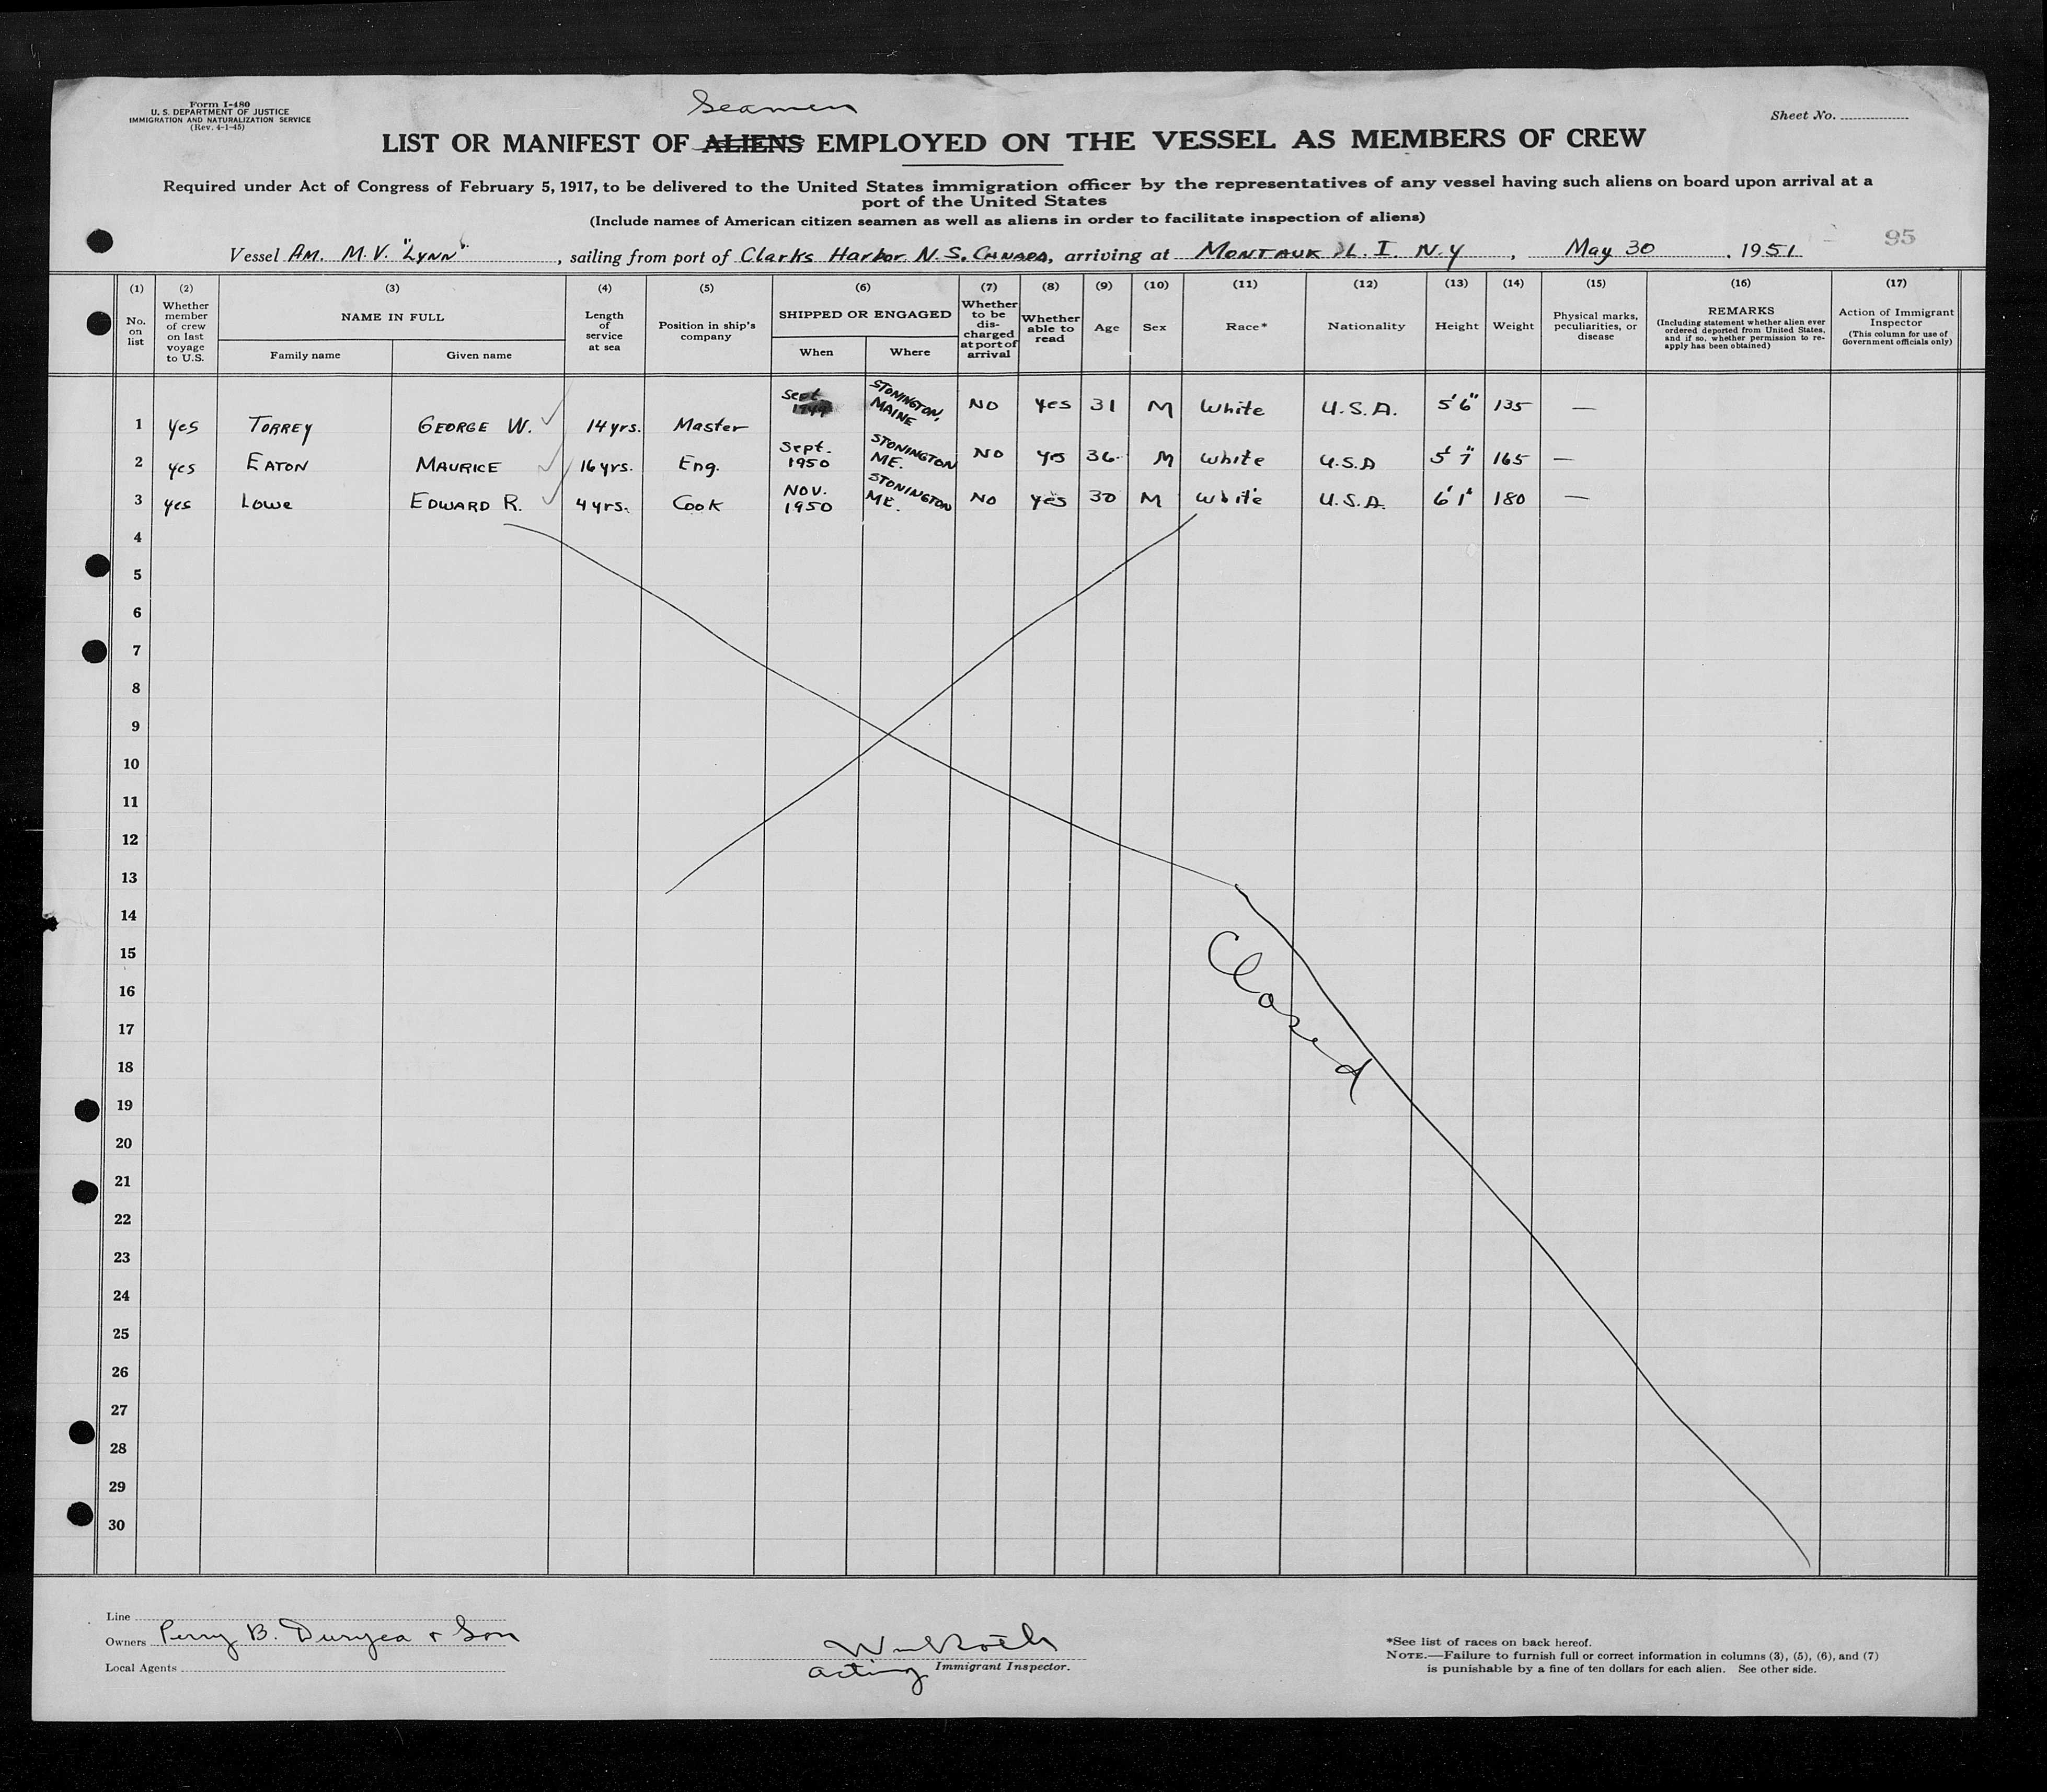 Form I-480
U. S. DEPARTMENT OF JUSTICE
IMMIGRATION AND NATURALIZATION SERVICE
(Rev. 4-1-45)
Seamen
Sheet No.
LIST OR MANIFEST OF ALIENS EMPLOYED ON THE VESSEL AS MEMBERS OF CREW
Required under Act of Congress of February 5, 1917, to be delivered to the United States immigration officer by the representatives of any vessel having such aliens on board upon arrival at a
port of the United States
(Include names of American citizen seamen as well as aliens in order to facilitate inspection of aliens)
95
Vessel AM. M.V. "LYNN", sailing from port of Clarks Harbor N.S. CANADA, arriving at MONTAUK L. I. N.Y, May 30, 1951
(1) (2) (3) (4) (5) (6) (7) (8) (9) (10) (11) (12) (13) (14) (15) (16) (17)
No. on list
Whether member of crew on last voyage to U.S.
NAME IN FULL
Family name
Given name
Length of service at sea
Position in ship's company
SHIPPED OR ENGAGED
When
Where
Whether to be discharged at port of arrival
Whether able to read
Age
Sex
Race*
Nationality
Height
Weight
Physical marks, peculiarities, or disease
REMARKS
(Including statement whether alien ever ordered deported from United States, and if so, whether permission to re-apply has been obtained)
Action of Immigrant Inspector
(This column for use of Government officials only)
1 yes TORREY GEORGE W. 14 yrs. Master Sept 1949 STONINGTON, MAINE NO yes 31 M White U.S.A. 5'6" 135 —
2 yes EATON MAURICE 16 yrs. Eng. Sept. 1950 STONINGTON ME. NO yes 36 M White U.S.A 5'7" 165 —
3 yes Lowe EDWARD R. 4 yrs. Cook NOV. 1950 STONINGTON ME. NO yes 30 M White U.S.A. 6'1" 180 —
4
5
6
7
8
9
10
11
12
13
14
15
16
17
18
19
20
21
22
23
24
25
26
27
28
29
30
Closed
Line
Owners Perry B. Duryea & Son
Local Agents
acting Immigrant Inspector.
*See list of races on back hereof.
NOTE.—Failure to furnish full or correct information in columns (3), (5), (6), and (7)
is punishable by a fine of ten dollars for each alien. See other side.